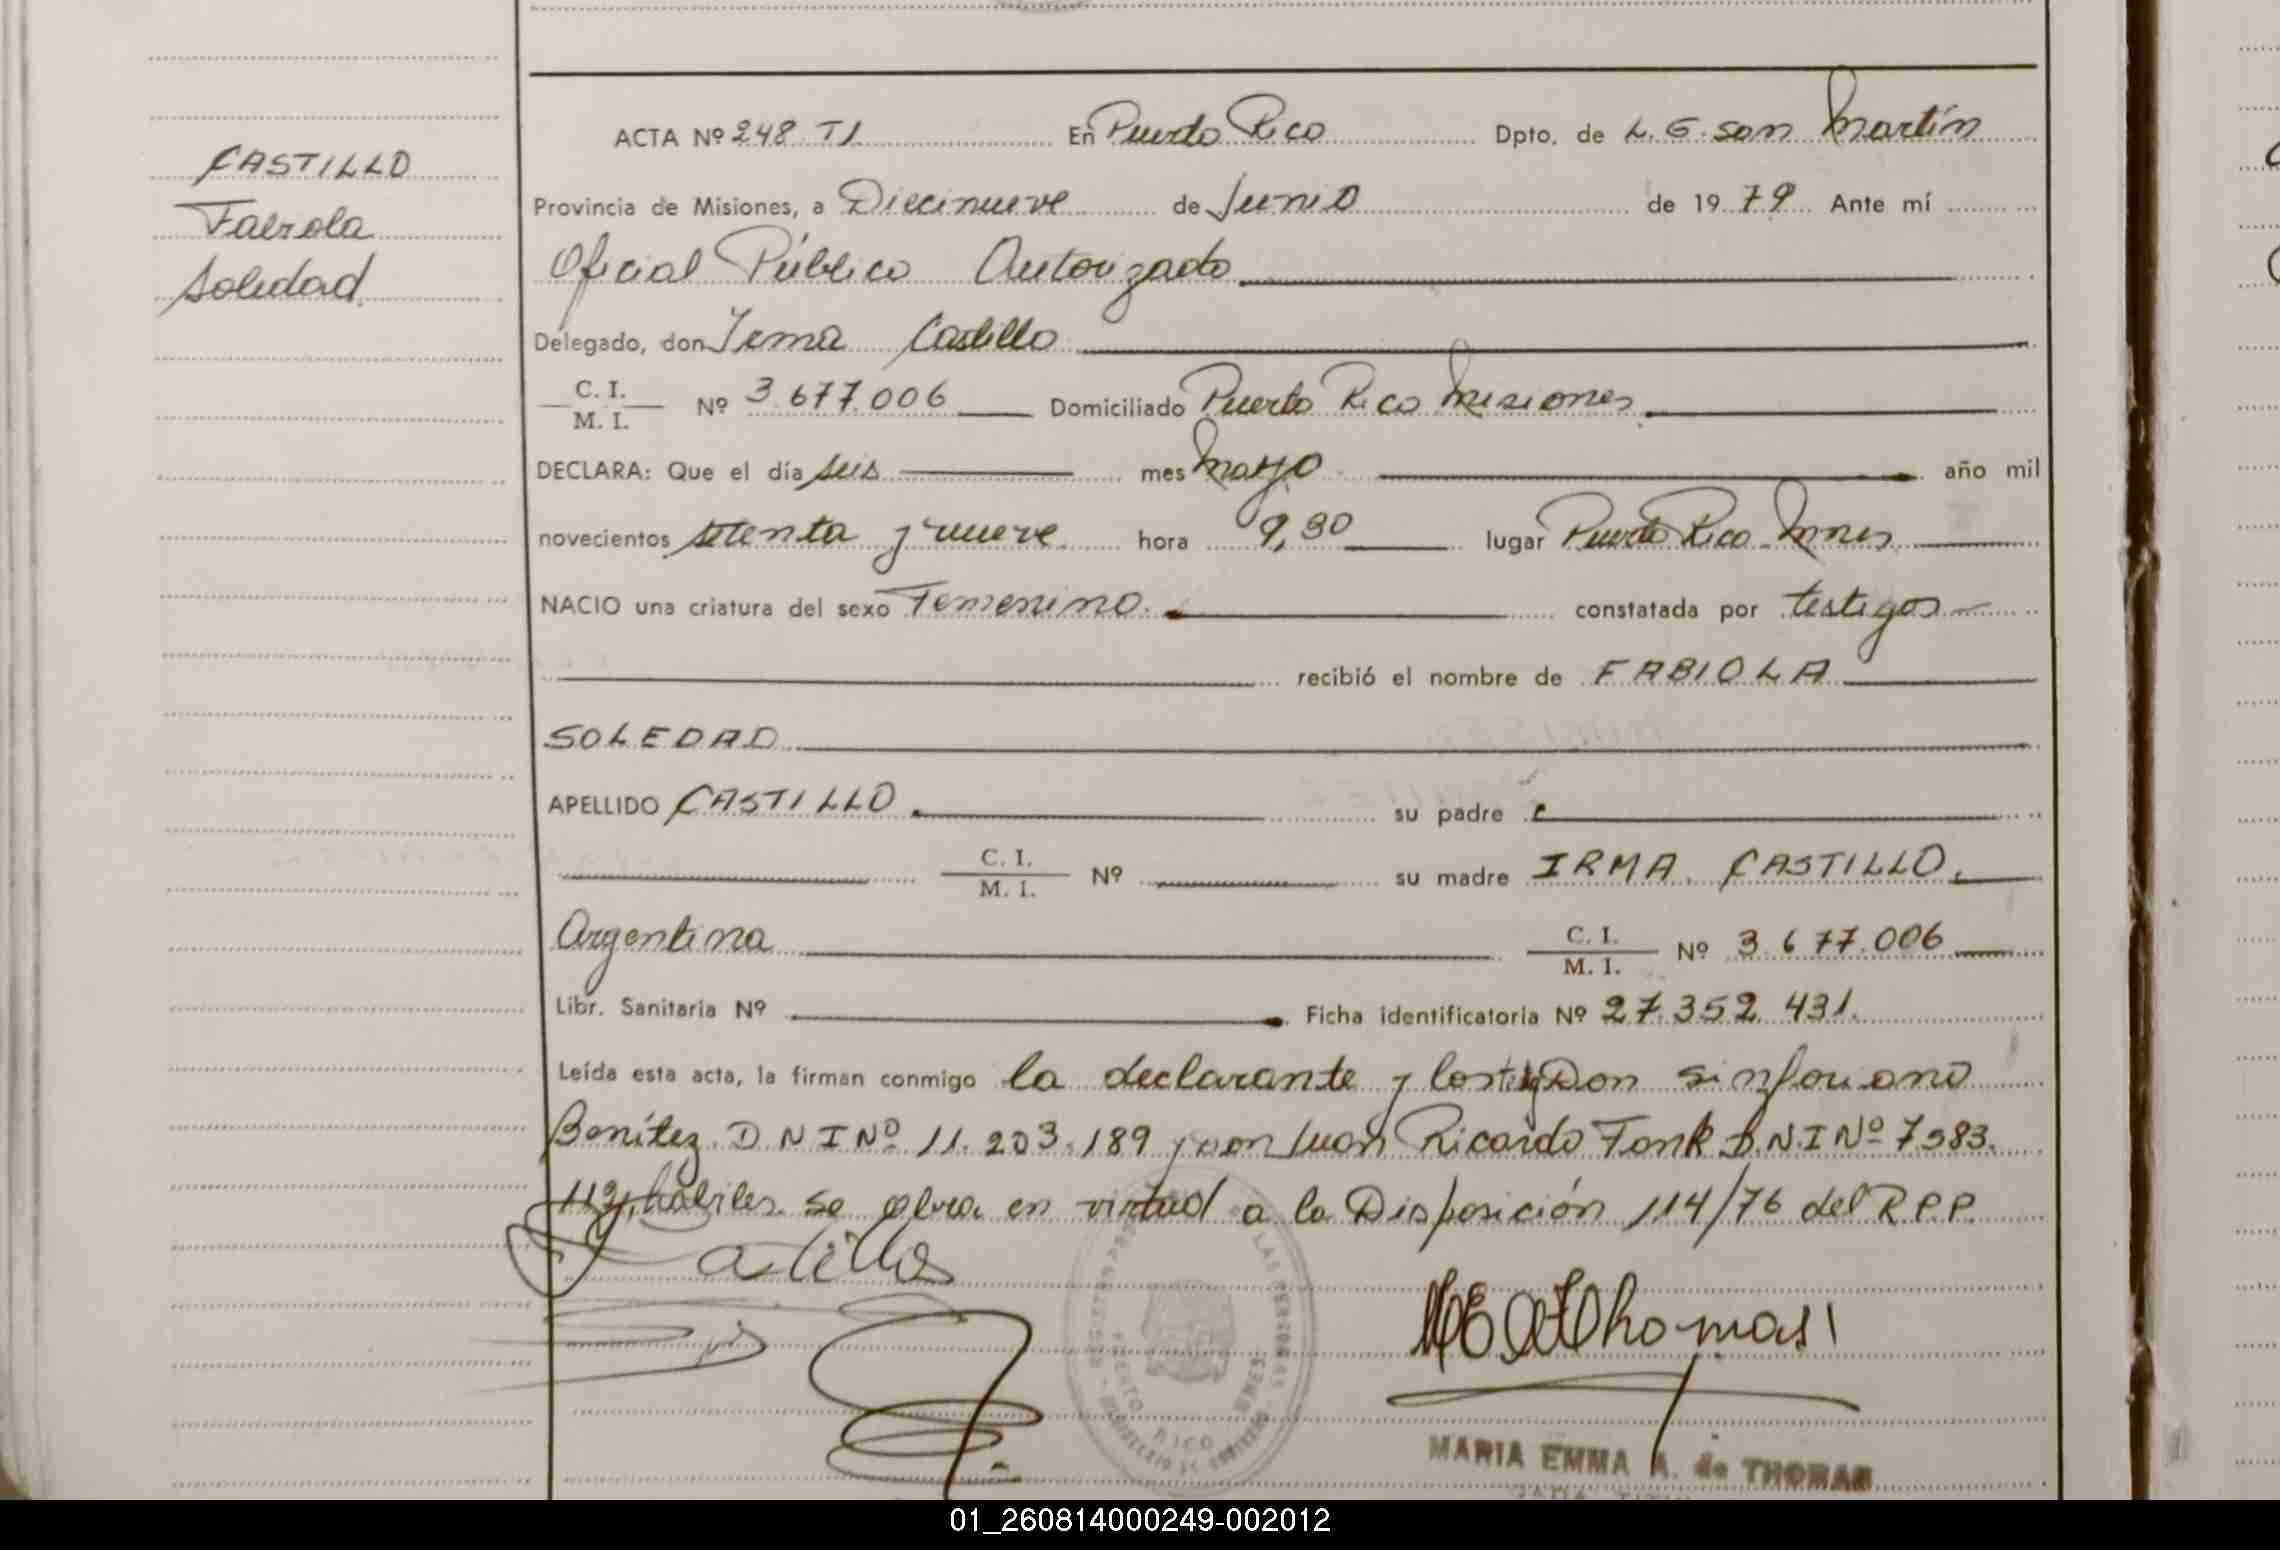 CASTILLO
Fabiola
Soledad
ACTA Nº 248 TI En Puerto Rico Dpto. de L. G. San Martín
Provincia de Misiones, a Diecinueve de Junio de 1979 Ante mí
Oficial Público Autorizado
Delegado, don Irma Castillo
C. I. / M. I. Nº 3.677.006 Domiciliado Puerto Rico Misiones
DECLARA: Que el día seis mes mayo año mil
novecientos setenta y nueve hora 9,30 lugar Puerto Rico Mnes
NACIO una criatura del sexo Femenino. constatada por testigos
recibió el nombre de FABIOLA
SOLEDAD
APELLIDO CASTILLO su padre
C. I. / M. I. Nº su madre IRMA CASTILLO.
Argentina C. I. / M. I. Nº 3.677.006
Libr. Sanitaria Nº Ficha identificatoria Nº 27.352.431.
Leída esta acta, la firman conmigo la declarante y los Don Sinforiano
Benítez D N I Nº 11.203.189 y don Juan Ricardo Fonk D.N.I Nº 7.583.
112, hábiles. Se obra en virtud a la Disposición 114/76 del R.P.P.
Castillo
MEA de Thomas
PUERTO RICO MNES.
MARIA EMMA A. de THOMAS
01_260814000249-002012